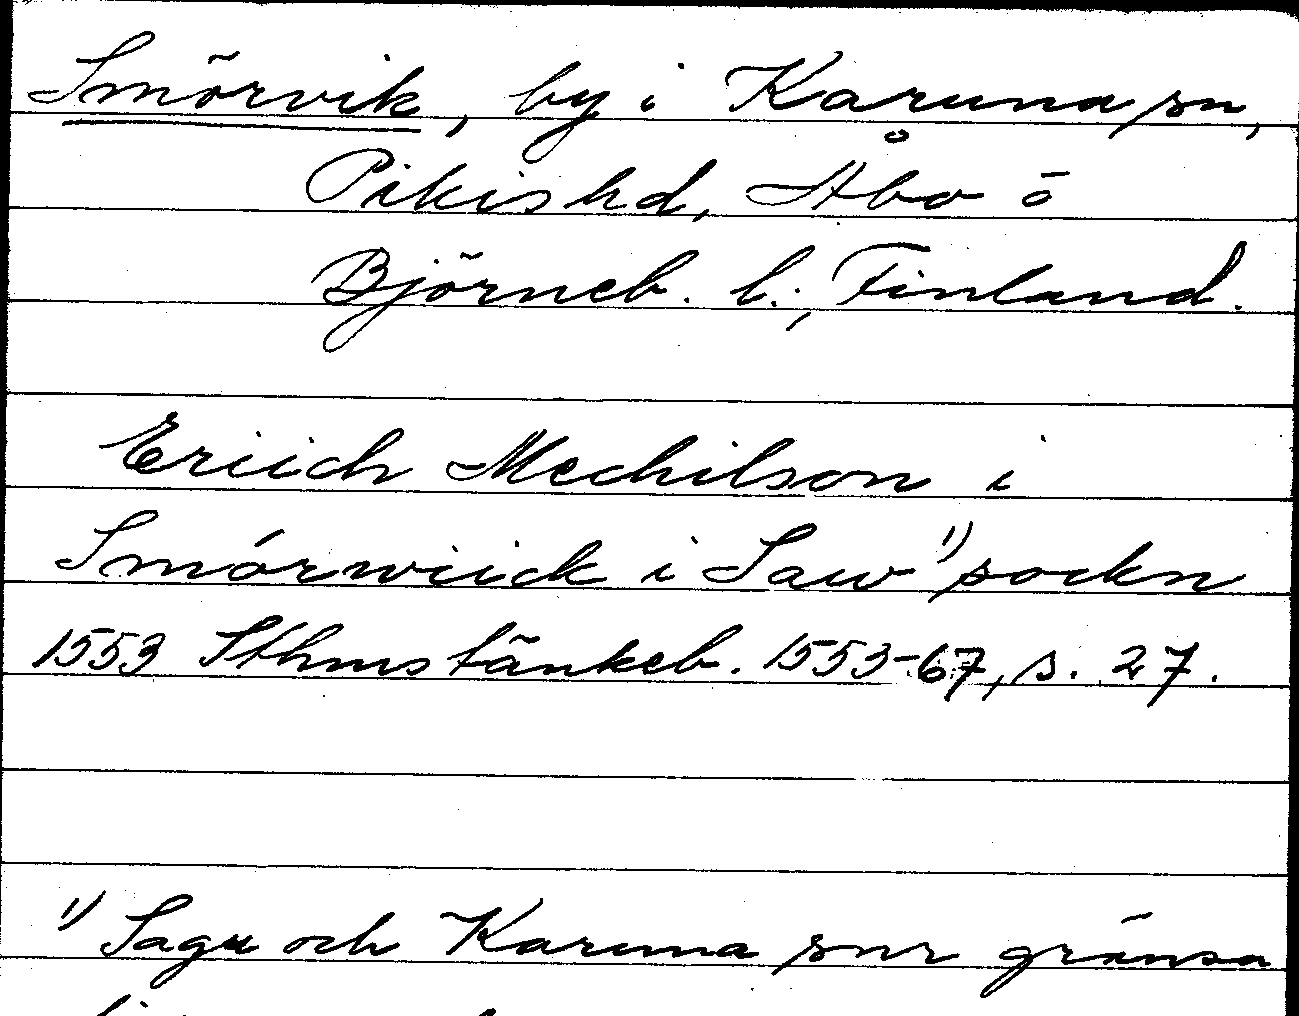 Smörvik, by i Karuna sn,
Pikis hd, Åbo o
Björneb. l:, Finland.
Eriich Mechilson i
Smórwiick i Saw 1) sockn
1553 Sthms tänkeb. 1553-67, s. 27.
1) Sagu och Karuna snr gränsa